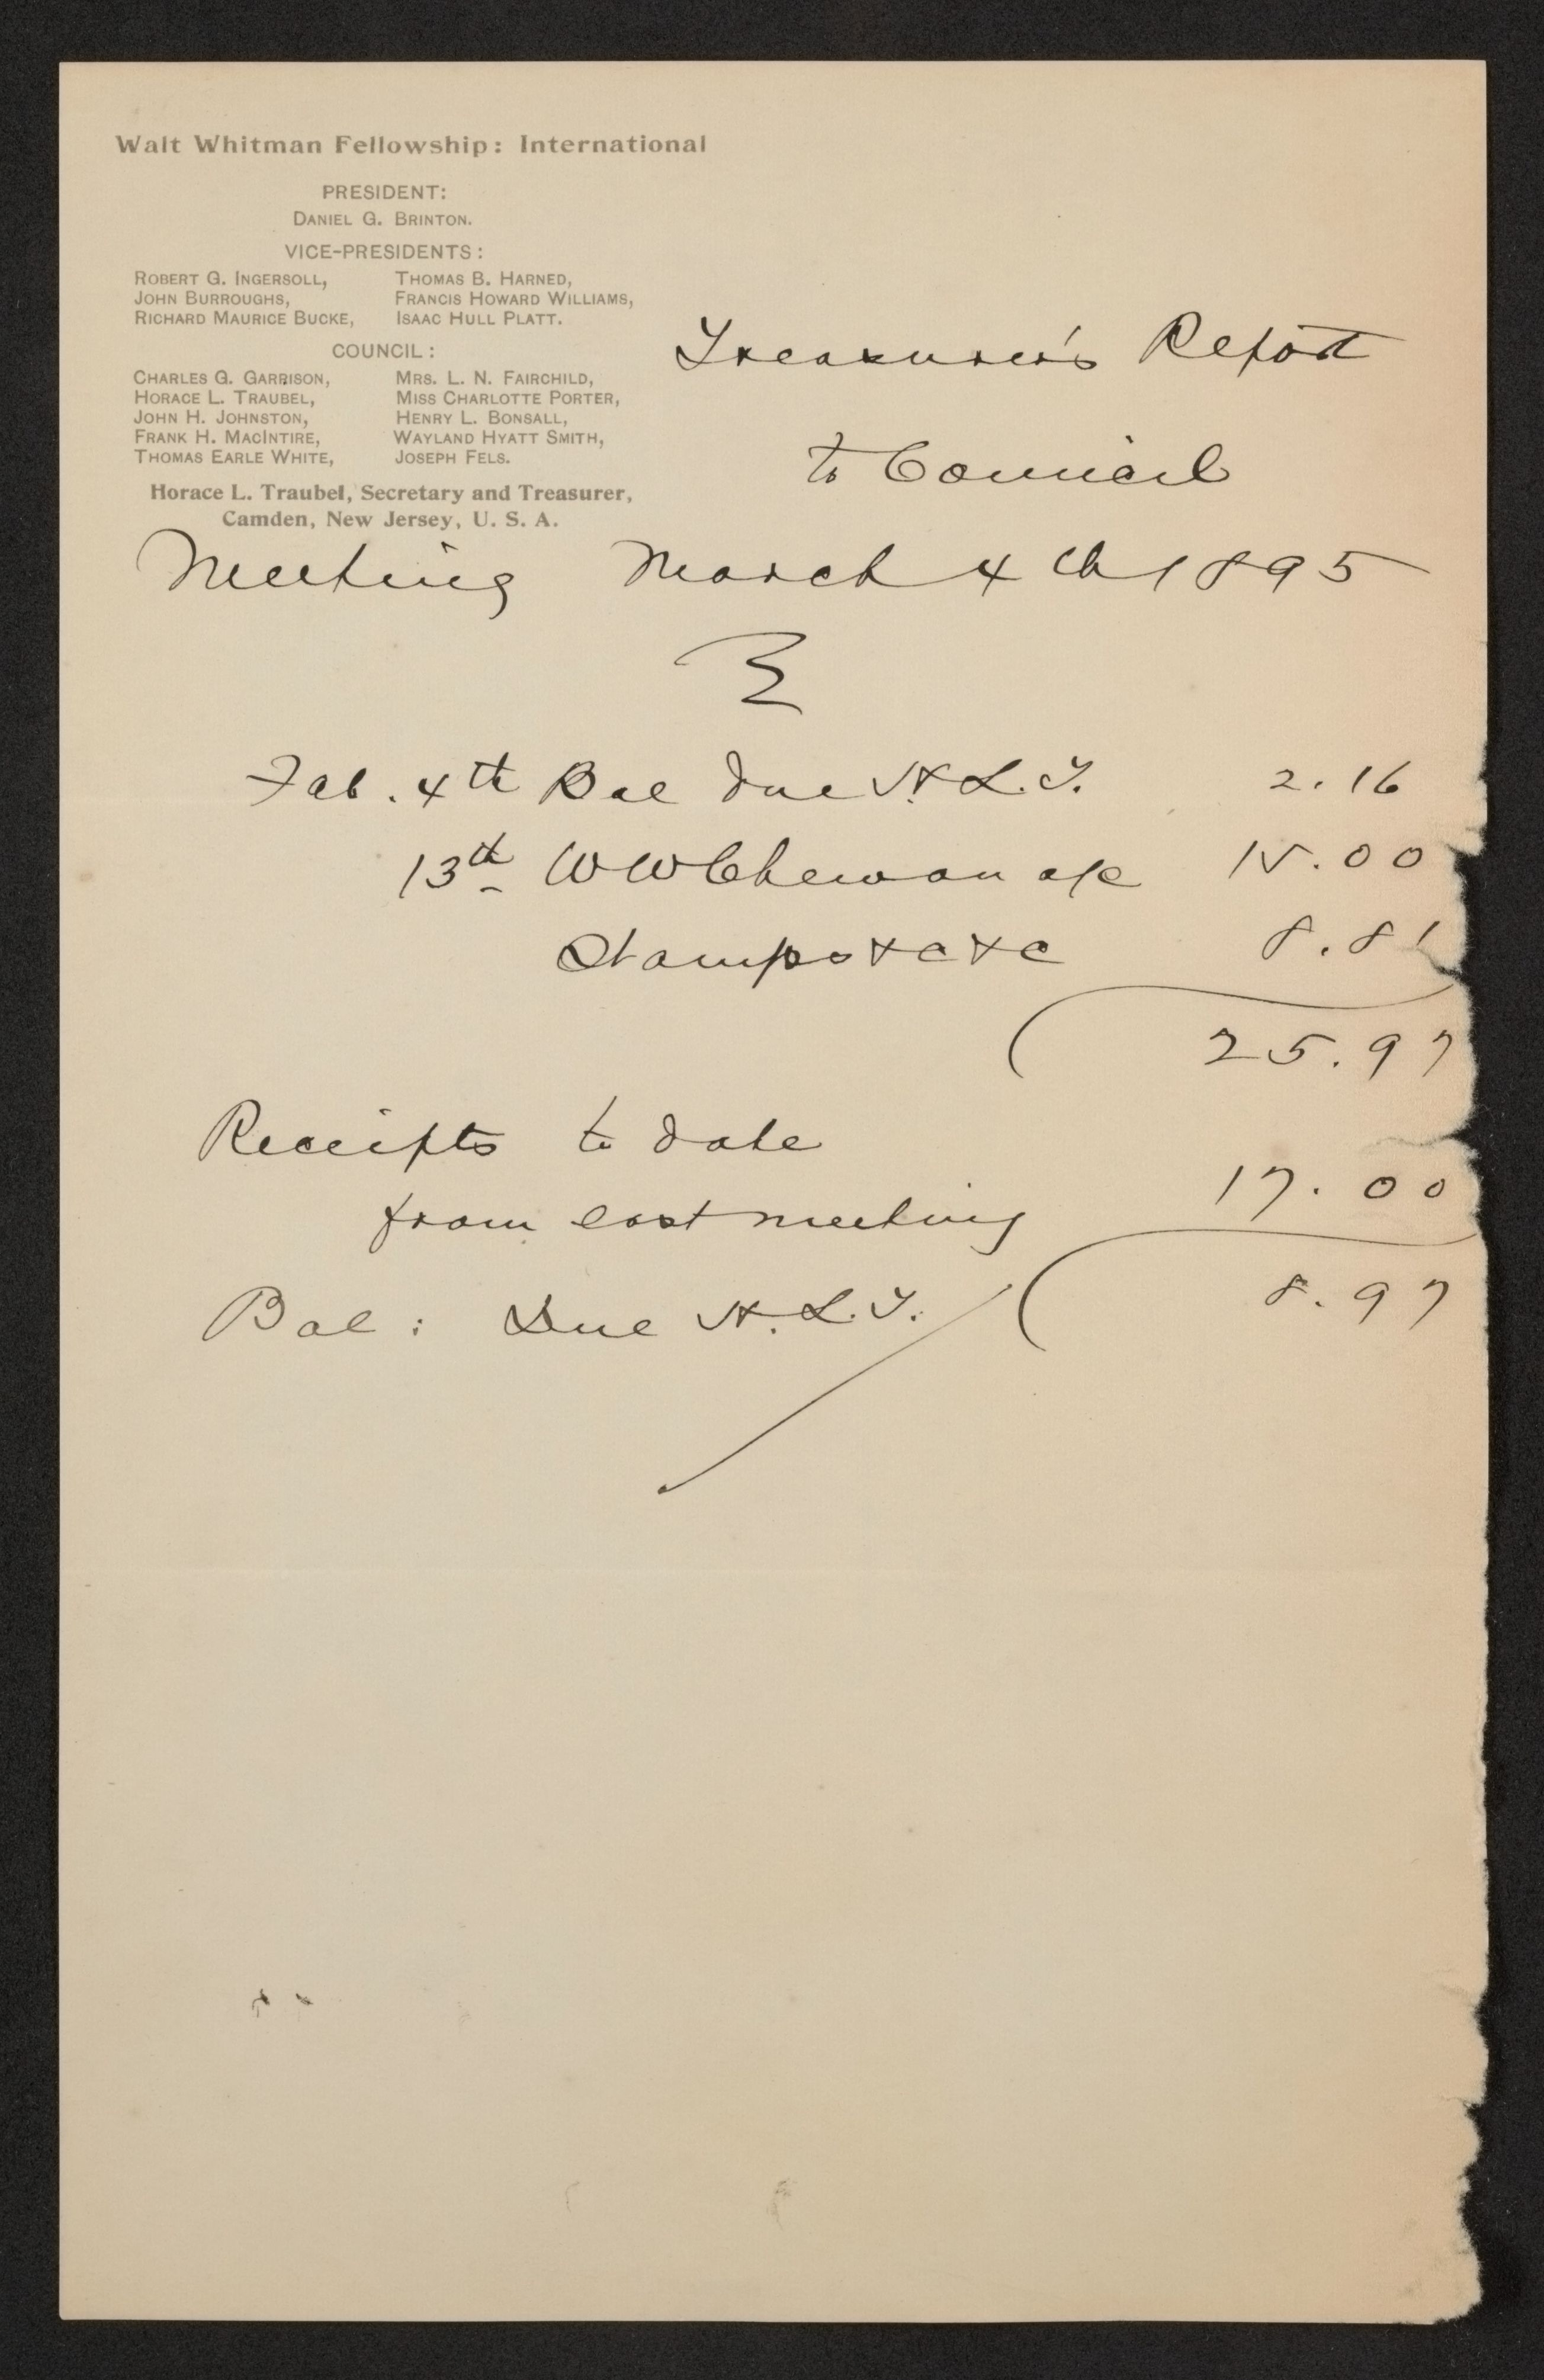 Walt Whitman Fellowship: International
PRESIDENT:
DANIEL G. BRINTON.
VICE-PRESIDENTS:
ROBERT G. INGERSOLL, THOMAS B. HARNED,
JOHN BURROUGHS, FRANCIS HOWARD WILLIAMS,
RICHARD MAURICE BUCKE, ISAAC HULL PLATT.
COUNCIL:
CHARLES G. GARRISON, MRS. L. N. FAIRCHILD,
HORACE L. TRAUBEL, MISS CHARLOTTE PORTER,
JOHN H. JOHNSTON, HENRY L. BONSALL,
FRANK H. MACINTIRE, WAYLAND HYATT SMITH,
THOMAS EARLE WHITE, JOSEPH FELS.
Horace L. Traubel, Secretary and Treasurer,
Camden, New Jersey, U. S. A.
Treasurer's Report
to Council
Meeting March 4th 1895
Feb. 4th Bal due H. L. T. 2.16
13th WW a/c 15.00
Stamps &c &c 8.81
25.97
Receipts to date
from last meeting 17.00
Bal: Due H. L. T. 8.97